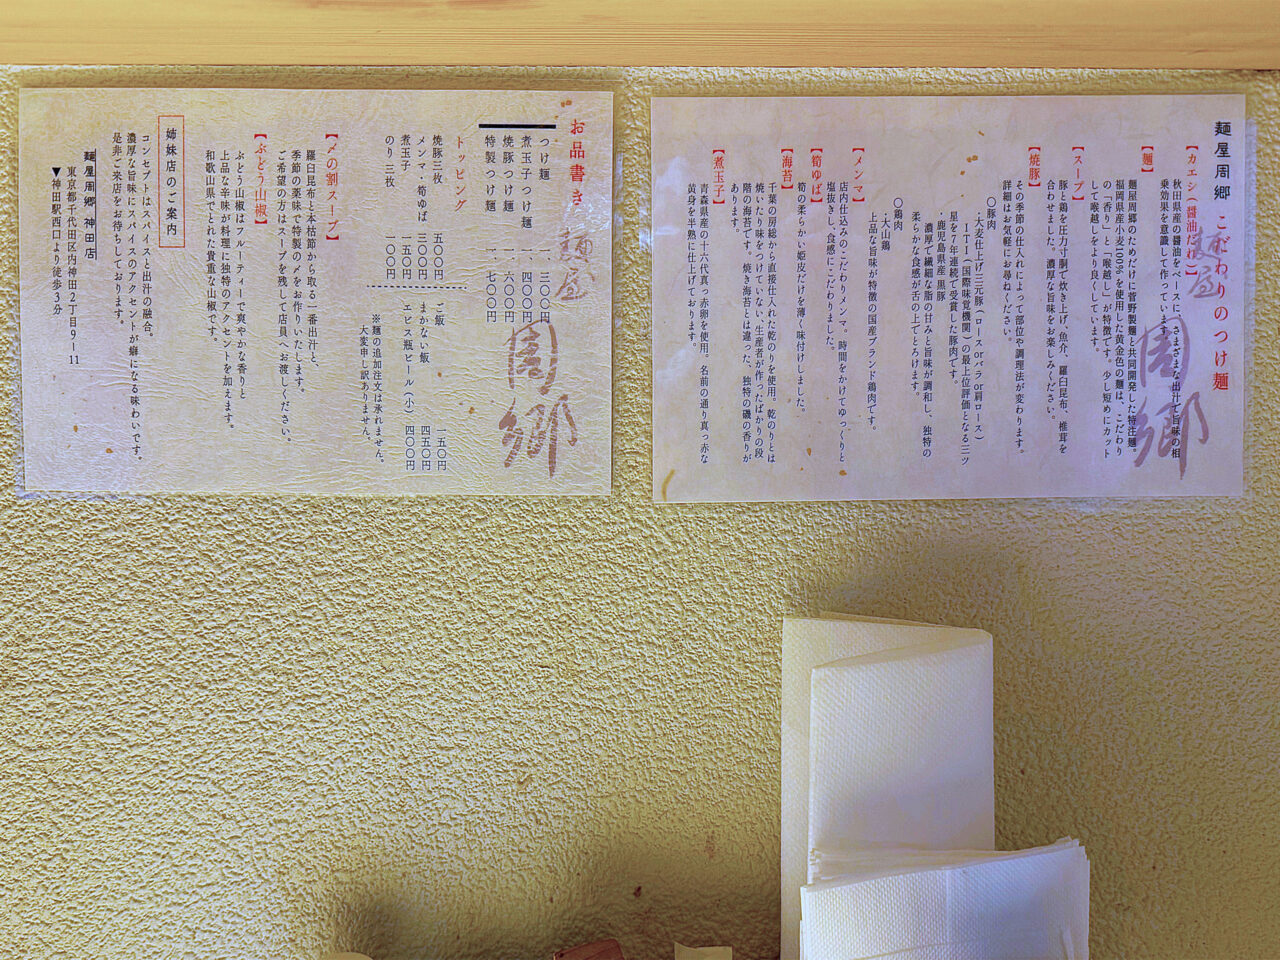 麺屋周郷 こだわりのつけ麺
【カエシ(醤油だれ)】
秋田県産の醤油をベースに、さまざまな出汁で旨味の相
乗効果を意識して作っています。
【麺】
麺屋周郷のためだけに菅野製麺と共同開発した特注麺。
福岡県産小麦100%を使用した黄金色の麺は、こだわり
の「香り」と「喉越し」が特徴です。少し短めにカット
して喉越しをより良くしています。
【スープ】
豚と鶏を圧力寸胴で炊き上げ、魚介、羅臼昆布、椎茸を
合わせました。濃厚な旨味をお楽しみください。
【焼豚】
その季節の仕入れによって部位や調理法が変わります。
詳細はお気軽にお尋ねください。
〇豚肉
・大麦仕上げ三元豚(ロースorバラor肩ロース)
ITI(国際味覚機関)の最上位評価となる三ツ
星を7年連続で受賞した豚肉です。
・鹿児島県産 黒豚
濃厚で繊細な脂の甘みと旨味が調和し、独特の
柔らかな食感が舌の上でとろけます。
〇鶏肉
・大山鶏
上品な旨味が特徴の国産ブランド鶏肉です。
【メンマ】
店内仕込みのこだわりメンマ。時間をかけてゆっくりと
塩抜きし、食感にこだわりました。
【筍ゆば】
筍の柔らかい姫皮だけを薄く味付けしました。
【海苔】
千葉の房総から直接仕入れた乾のりを使用。乾のりとは
焼いたり味をつけていない、生産者が作ったばかりの段
階の海苔です。焼き海苔とは違った、独特の磯の香りが
あります。
【煮玉子】
青森県産の十六代真っ赤卵を使用。名前の通り真っ赤な
黄身を半熟に仕上げております。
麺屋
周郷
お品書き
つけ麺 一、三〇〇円
煮玉子つけ麺 一、四〇〇円
焼豚つけ麺 一、六〇〇円
特製つけ麺 一、七〇〇円
トッピング
焼豚三枚 五〇〇円
メンマ・筍ゆば 三〇〇円
煮玉子 一五〇円
のり三枚 一〇〇円
ご飯 一五〇円
まかない飯 四五〇円
エビス瓶ビール(小) 四〇〇円
※麺の追加注文は承れません。
大変申し訳ありません。
【〆の割スープ】
羅臼昆布と本枯節から取る一番出汁と、
季節の薬味で特製の〆をお作りいたします。
ご希望の方はスープを残して店員へお渡しください。
【ぶどう山椒】
ぶどう山椒はフルーティーで爽やかな香りと
上品な辛味が料理に独特のアクセントを加えます。
和歌山県でとれた貴重な山椒です。
姉妹店のご案内
コンセプトはスパイスと出汁の融合。
濃厚な旨味にスパイスのアクセントが癖になる味わいです。
是非ご来店をお待ちしております。
麺屋周郷 神田店
東京都千代田区内神田2丁目9-11
▼神田駅西口より徒歩3分
麺屋
周郷